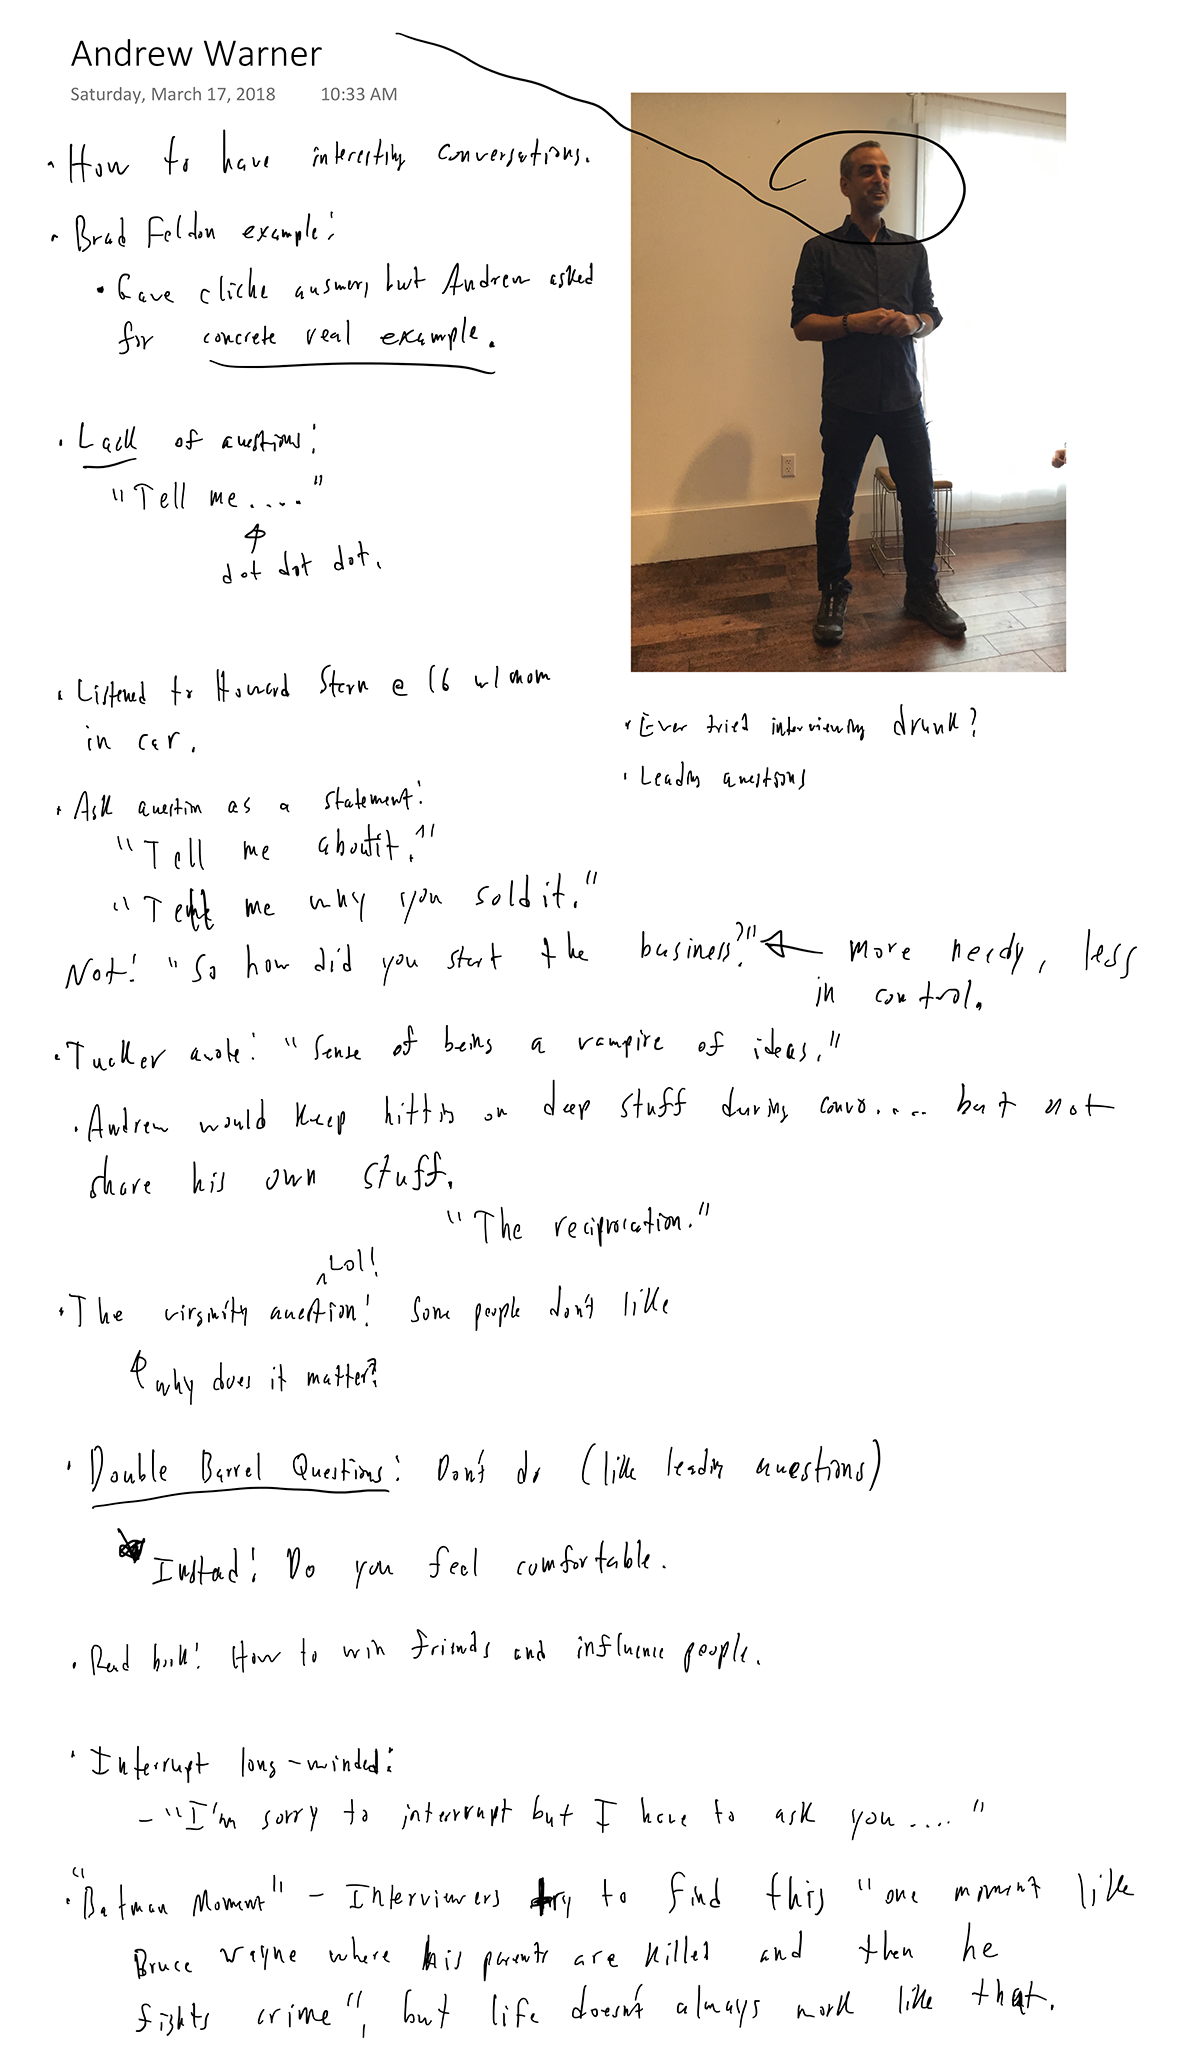 Andrew Warner
Saturday, March 17, 2018 10:33 AM
• How to have interesting conversations.
• Brad Feldon example:
• Gave cliche answer, but Andrew asked
for concrete real example.
• Lack of questions:
"Tell me...."
dot dot dot.
• Listened to Howard Stern @ 16 w/ mom
in car.
• Ever tried interviewing drunk?
• Leading questions
• Ask question as a statement:
"Tell me about it."
"Tell me why you sold it."
Not: "So how did you start the business?" ← more needy, less
in control.
• Tucker quote: "Sense of being a vampire of ideas."
• Andrew would keep hitting on deep stuff during convo.... but not
share his own stuff.
"The reciprocation."
^Lol!
• The virginity question! Some people don't like
why does it matter?
• Double Barrel Questions: Don't do (like leading questions)
Instead: Do you feel comfortable.
• Read book: How to win friends and influence people.
• Interrupt long-winded:
- "I'm sorry to interrupt but I have to ask you...."
• "Batman Moment" - Interviewers try to find this "one moment like
Bruce Wayne where his parents are killed and then he
fights crime", but life doesn't always work like that.